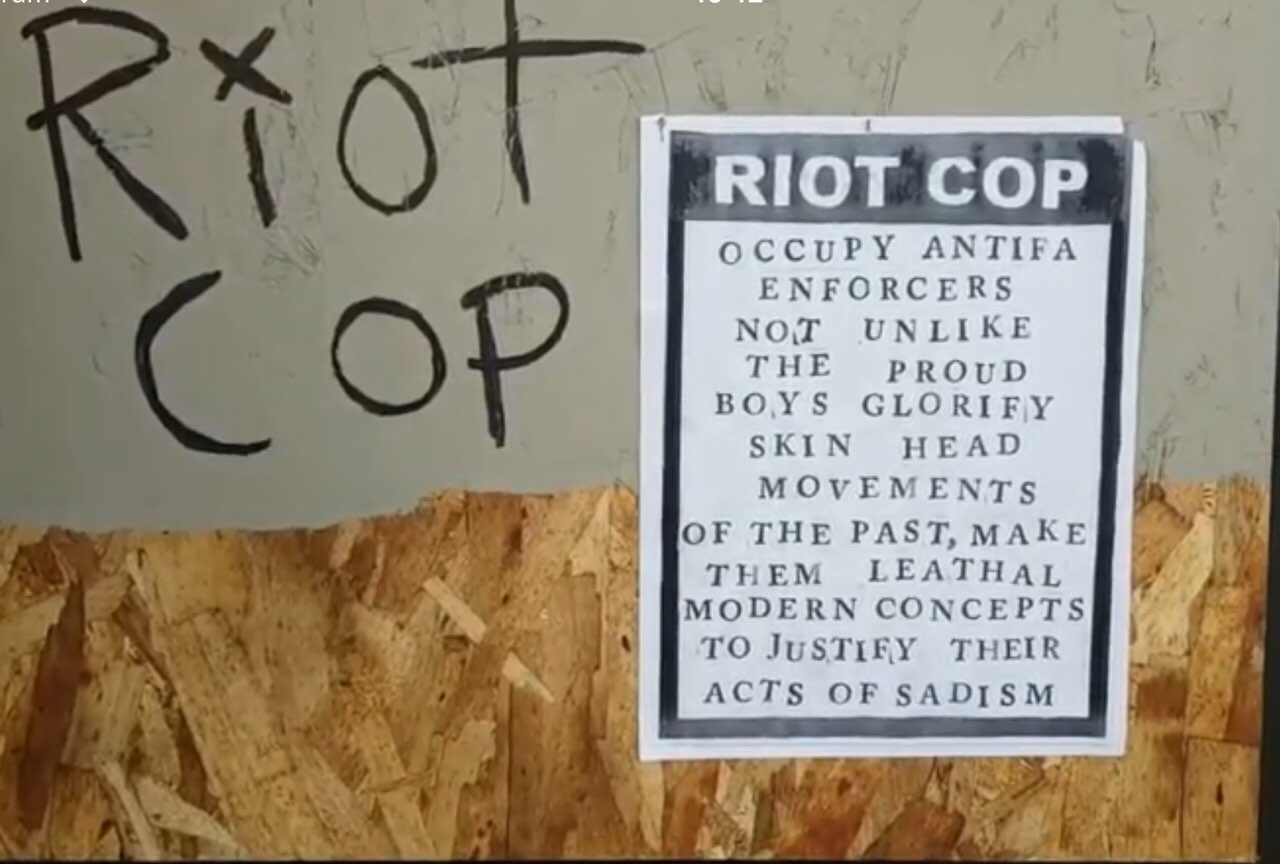 Riot
Cop
RIOT COP
OCCUPY ANTIFA
ENFORCERS
NOT UNLIKE
THE PROUD
BOYS GLORIFY
SKIN HEAD
MOVEMENTS
OF THE PAST, MAKE
THEM LEATHAL
MODERN CONCEPTS
TO JUSTIFY THEIR
ACTS OF SADISM